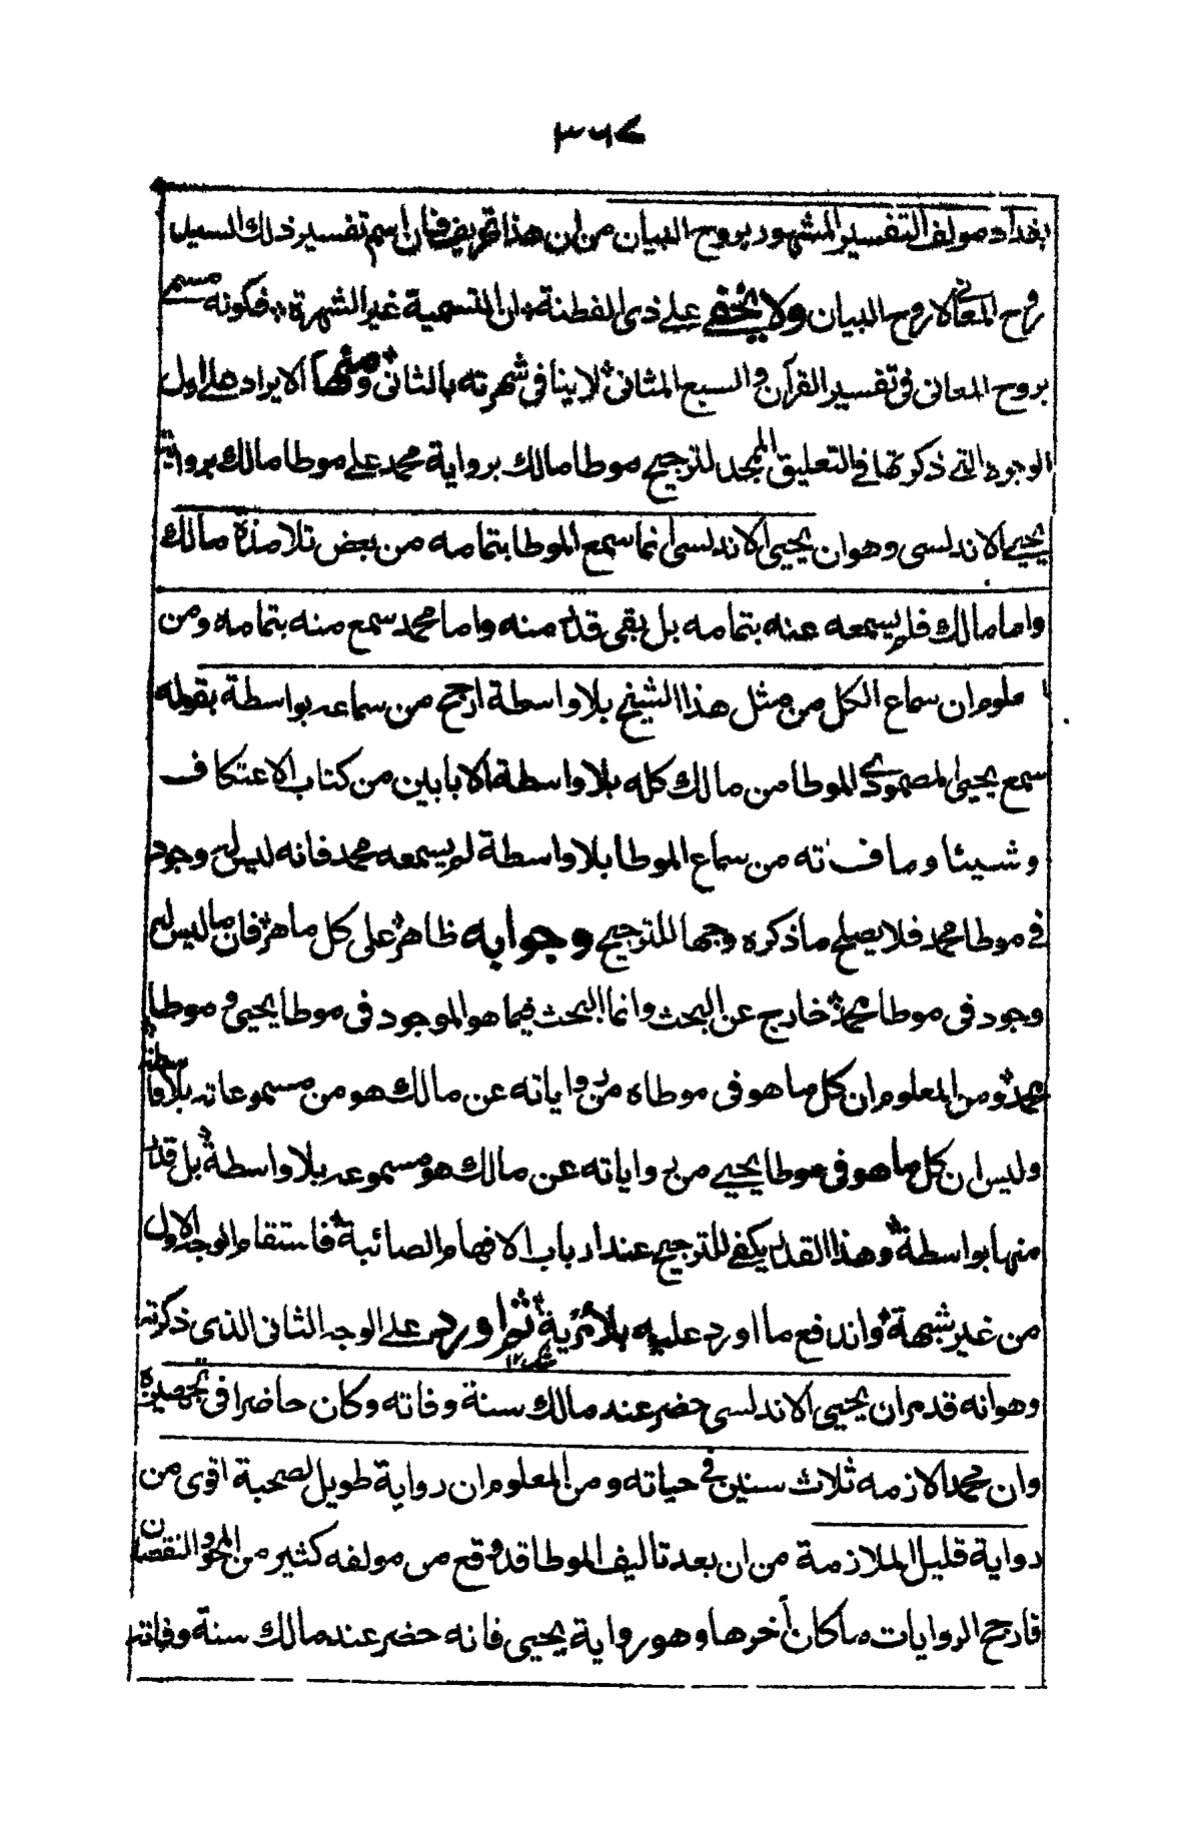 ٣٦٧
بغداد مولف التفسير المشهور بروح البيان من ان هذا تحريف فان اسم تفسير ذلك السيد
روح المعاني لا روح البيان ولا يخفى على ذى الفطنة ان التسمية غير الشهرة فكونه مسمى
بروح المعانى فى تفسير القرآن والسبع المثانى لا ينافى شهرته بالثانى ومنها الايراد على اول
الوجوه التى ذكرتها فى التعليق الممجد لترجيح موطا مالك برواية محمد على موطا مالك برواية
يحيى الاندلسى وهو ان يحيى الاندلسى انما سمع الموطا بتمامه من بعض تلامذة مالك
واما مالك فلم يسمعه عنه بتمامه بل بقى قدر منه واما محمد سمع منه بتمامه ومن
المعلوم ان سماع الكل من مثل هذا الشيخ بلا واسطة ارجح من سماعه بواسطة بقوله
سمع يحيى المصمودى للموطا من مالك كله بلا واسطة الا بابين من كتاب الاعتكاف
وشيئا وما فاته من سماع الموطا بلا واسطة لم يسمعه محمد فانه ليس له وجود
فى موطا محمد فلا يصلح ما ذكره وجها للترجيح وجوابه ظاهر على كل ماهر فان ما ليس له
وجود فى موطا محمد خارج عن البحث وانما البحث فيما هو الموجود فى موطا يحيى و موطا
محمد ومن المعلوم ان كل ما هو فى موطاه من رواياته عن مالك هو من مسموعاته بلا واسطة
وليس ان كل ما هو فى موطا يحيى من رواياته عن مالك هو مسموعه بلا واسطة بل قدر
منها بواسطة وهذا القدر يكفى للترجيح عند ارباب الافهام الصائبة فاستقام الوجه الاول
من غير شبهة واندفع ما اورد عليه بلا مرية ثم اورد على الوجه الثانى الذى ذكرته
وهو انه قد مر ان يحيى الاندلسى حضر عند مالك سنة وفاته وكان حاضرا فى تجهيزه
وان محمد لازمه ثلاث سنين فى حياته ومن المعلوم ان رواية طويل الصحبة اقوى من
رواية قليل الملازمة من ان بعد تاليف الموطا قد وقع من مولفه كثير من المحو والنقصان
فارجح الروايات ما كان أخرها وهو رواية يحيى فانه حضر عند مالك سنة وفاته